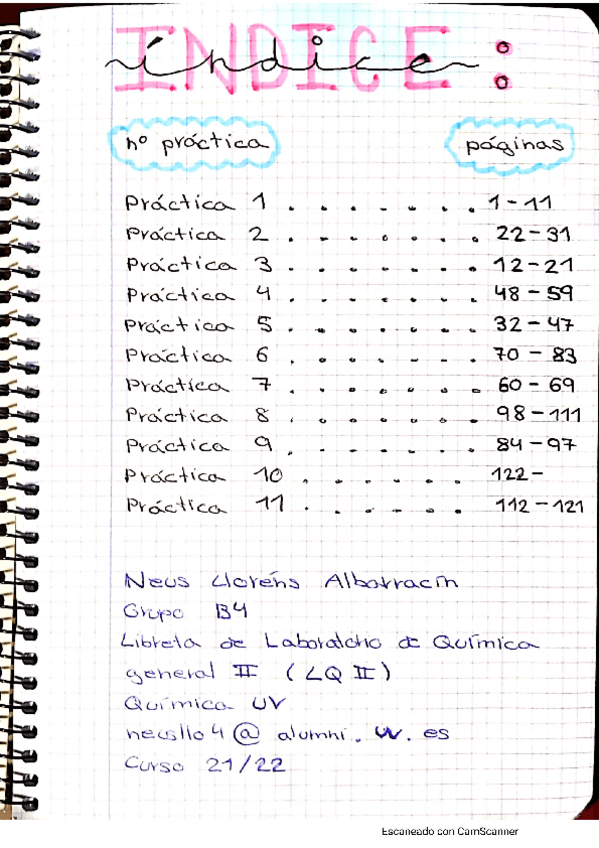 ÍNDICE:
índice
nº práctica páginas
Práctica 1 . . . . . . . 1-11
Práctica 2 . . . . . . . 22-31
Práctica 3 . . . . . . . 12-21
Práctica 4 . . . . . . . 48-59
Práctica 5 . . . . . . . 32-47
Práctica 6 . . . . . . . 70-83
Práctica 7 . . . . . . . 60-69
Práctica 8 . . . . . . . 98-111
Práctica 9 . . . . . . . 84-97
Práctica 10 . . . . . . 122-
Práctica 11 . . . . . . 112-121
Neus Lloréns Albarracín
Grupo B4
Libreta de Laboratorio de Química
general II (LQ II)
Química UV
neusllo4@alumni.uv.es
Curso 21/22
Escaneado con CamScanner